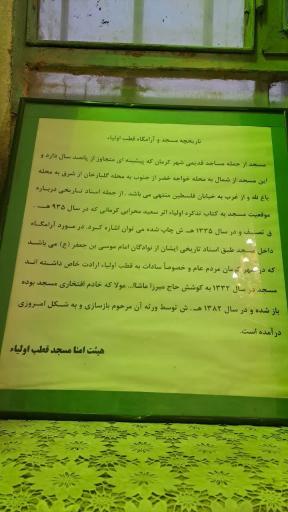 تاریخچه مسجد و آرامگاه قطب اولیاء
مسجد از جمله مساجد قدیمی شهر کرمان که پیشینه ای متجاوز از پانصد سال دارد و
این مسجد از شمال به محله خواجه خضر از جنوب به محله گلبازخان از شرق به محله
باغ لله و از غرب به خیابان فلسطین منتهی می باشد . از جمله اسناد تاریخی درباره
موقعیت مسجد به کتاب تذکره اولیاء اثر سعید محرابی کرمانی که در سال ۹۳۵ هـ.
ق تصنیف و در سال ۱۳۳۵ هـ.ش چاپ شده می توان اشاره کرد. در مورد آرامگاه
داخل مسجد طبق اسناد تاریخی ایشان از نوادگان امام موسی بن جعفر (ع) می باشد
که در شهر کرمان مردم عام و خصوصاً سادات به قطب اولیاء ارادت خاص داشته اند
مسجد در سال ۱۳۳۲ به کوشش حاج میرزا ماشاا... مولا که خادم افتخاری مسجد بوده
باز شده و در سال ۱۳۸۲ هـ.ش توسط ورثه آن مرحوم بازسازی و به شکل امروزی
درآمده است.
هیئت امنا مسجد قطب اولیاء